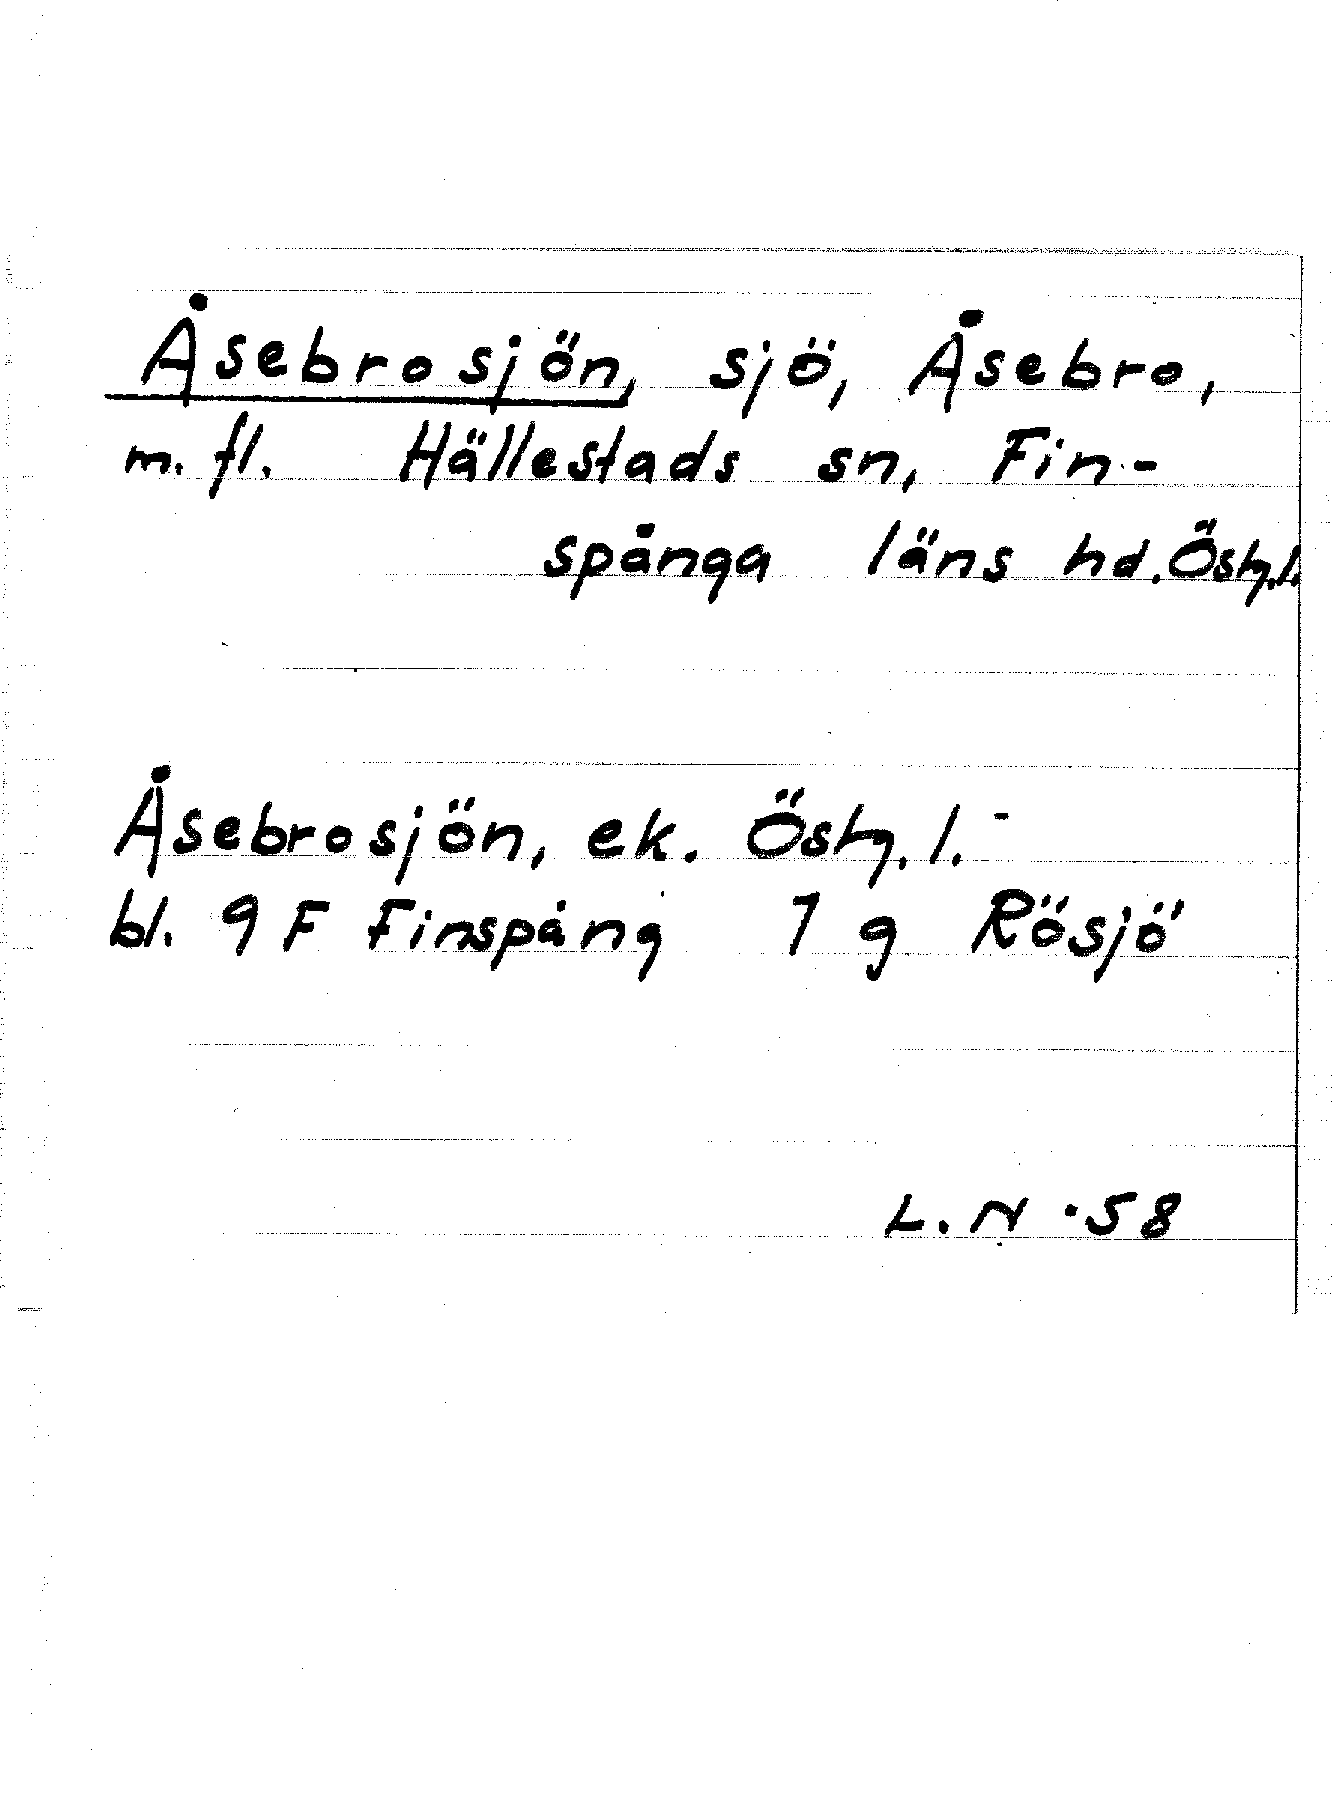 Åsebrosjön, sjö, Åsebro,
m. fl. Hällestads sn, Fin-
spånga läns hd. Östg.l.
Åsebrosjön, ek. Östg. l.
bl. 9 F Finspång 1 g Rösjö
L. N. 58